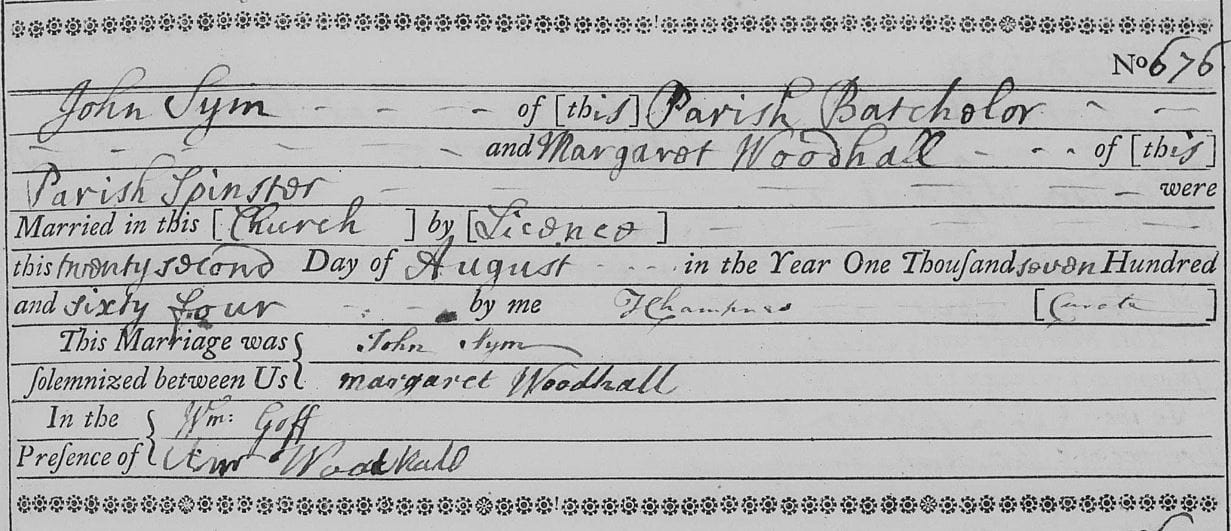 No 676
John Sym - - - - of [this] Parish Batchelor - -
- - - - - - and Margaret Woodhall - - - of [this]
Parish Spinster - - - - - - were
Married in this [Church ] by [Licence ] - - - -
this twenty second Day of August - - - in the Year One Thouſand seven Hundred
and sixty four - - - by me T Champnes [Curate ]
This Marriage was { John Sym
ſolemnized between Us { margaret Woodhall
In the { Wm: Goff
Preſence of { Ann Woodhall